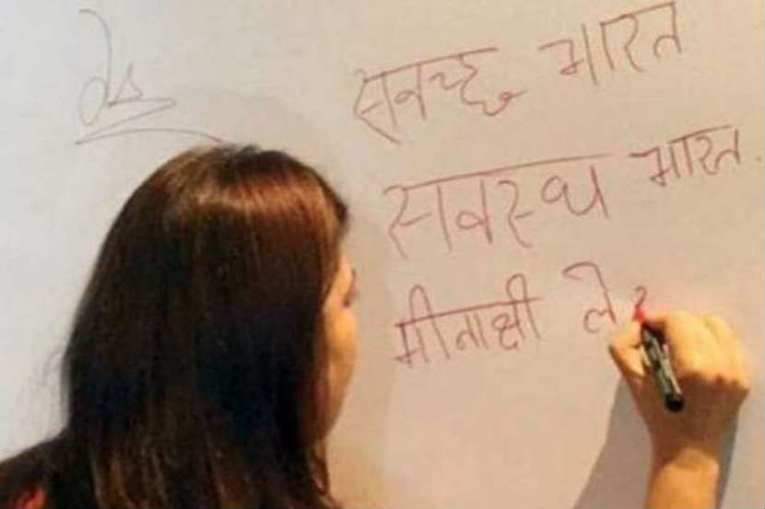 स्वच्छ भारत
स्वस्थ भारत.
मीनाक्षी ले